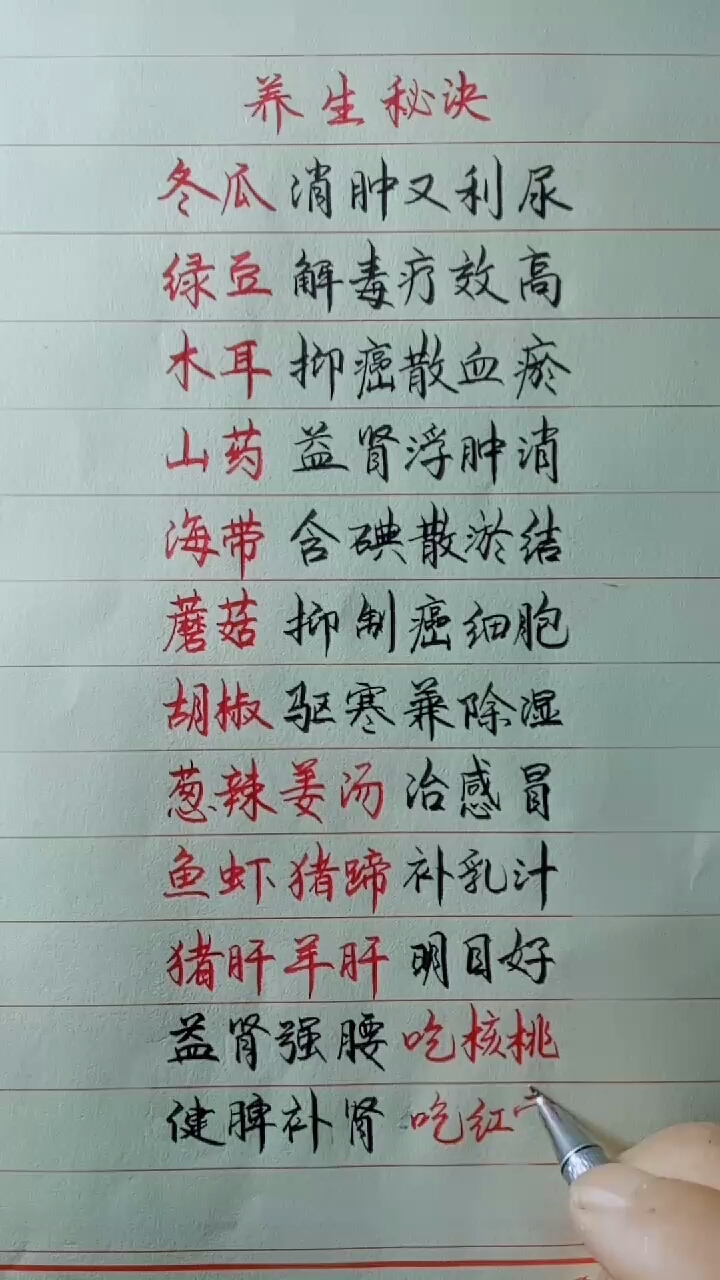 养生秘诀
冬瓜消肿又利尿
绿豆解毒疗效高
木耳抑癌散血瘀
山药益肾浮肿消
海带含碘散淤结
蘑菇抑制癌细胞
胡椒驱寒兼除湿
葱辣姜汤治感冒
鱼虾猪蹄补乳汁
猪肝羊肝明目好
益肾强腰吃核桃
健脾补肾吃红